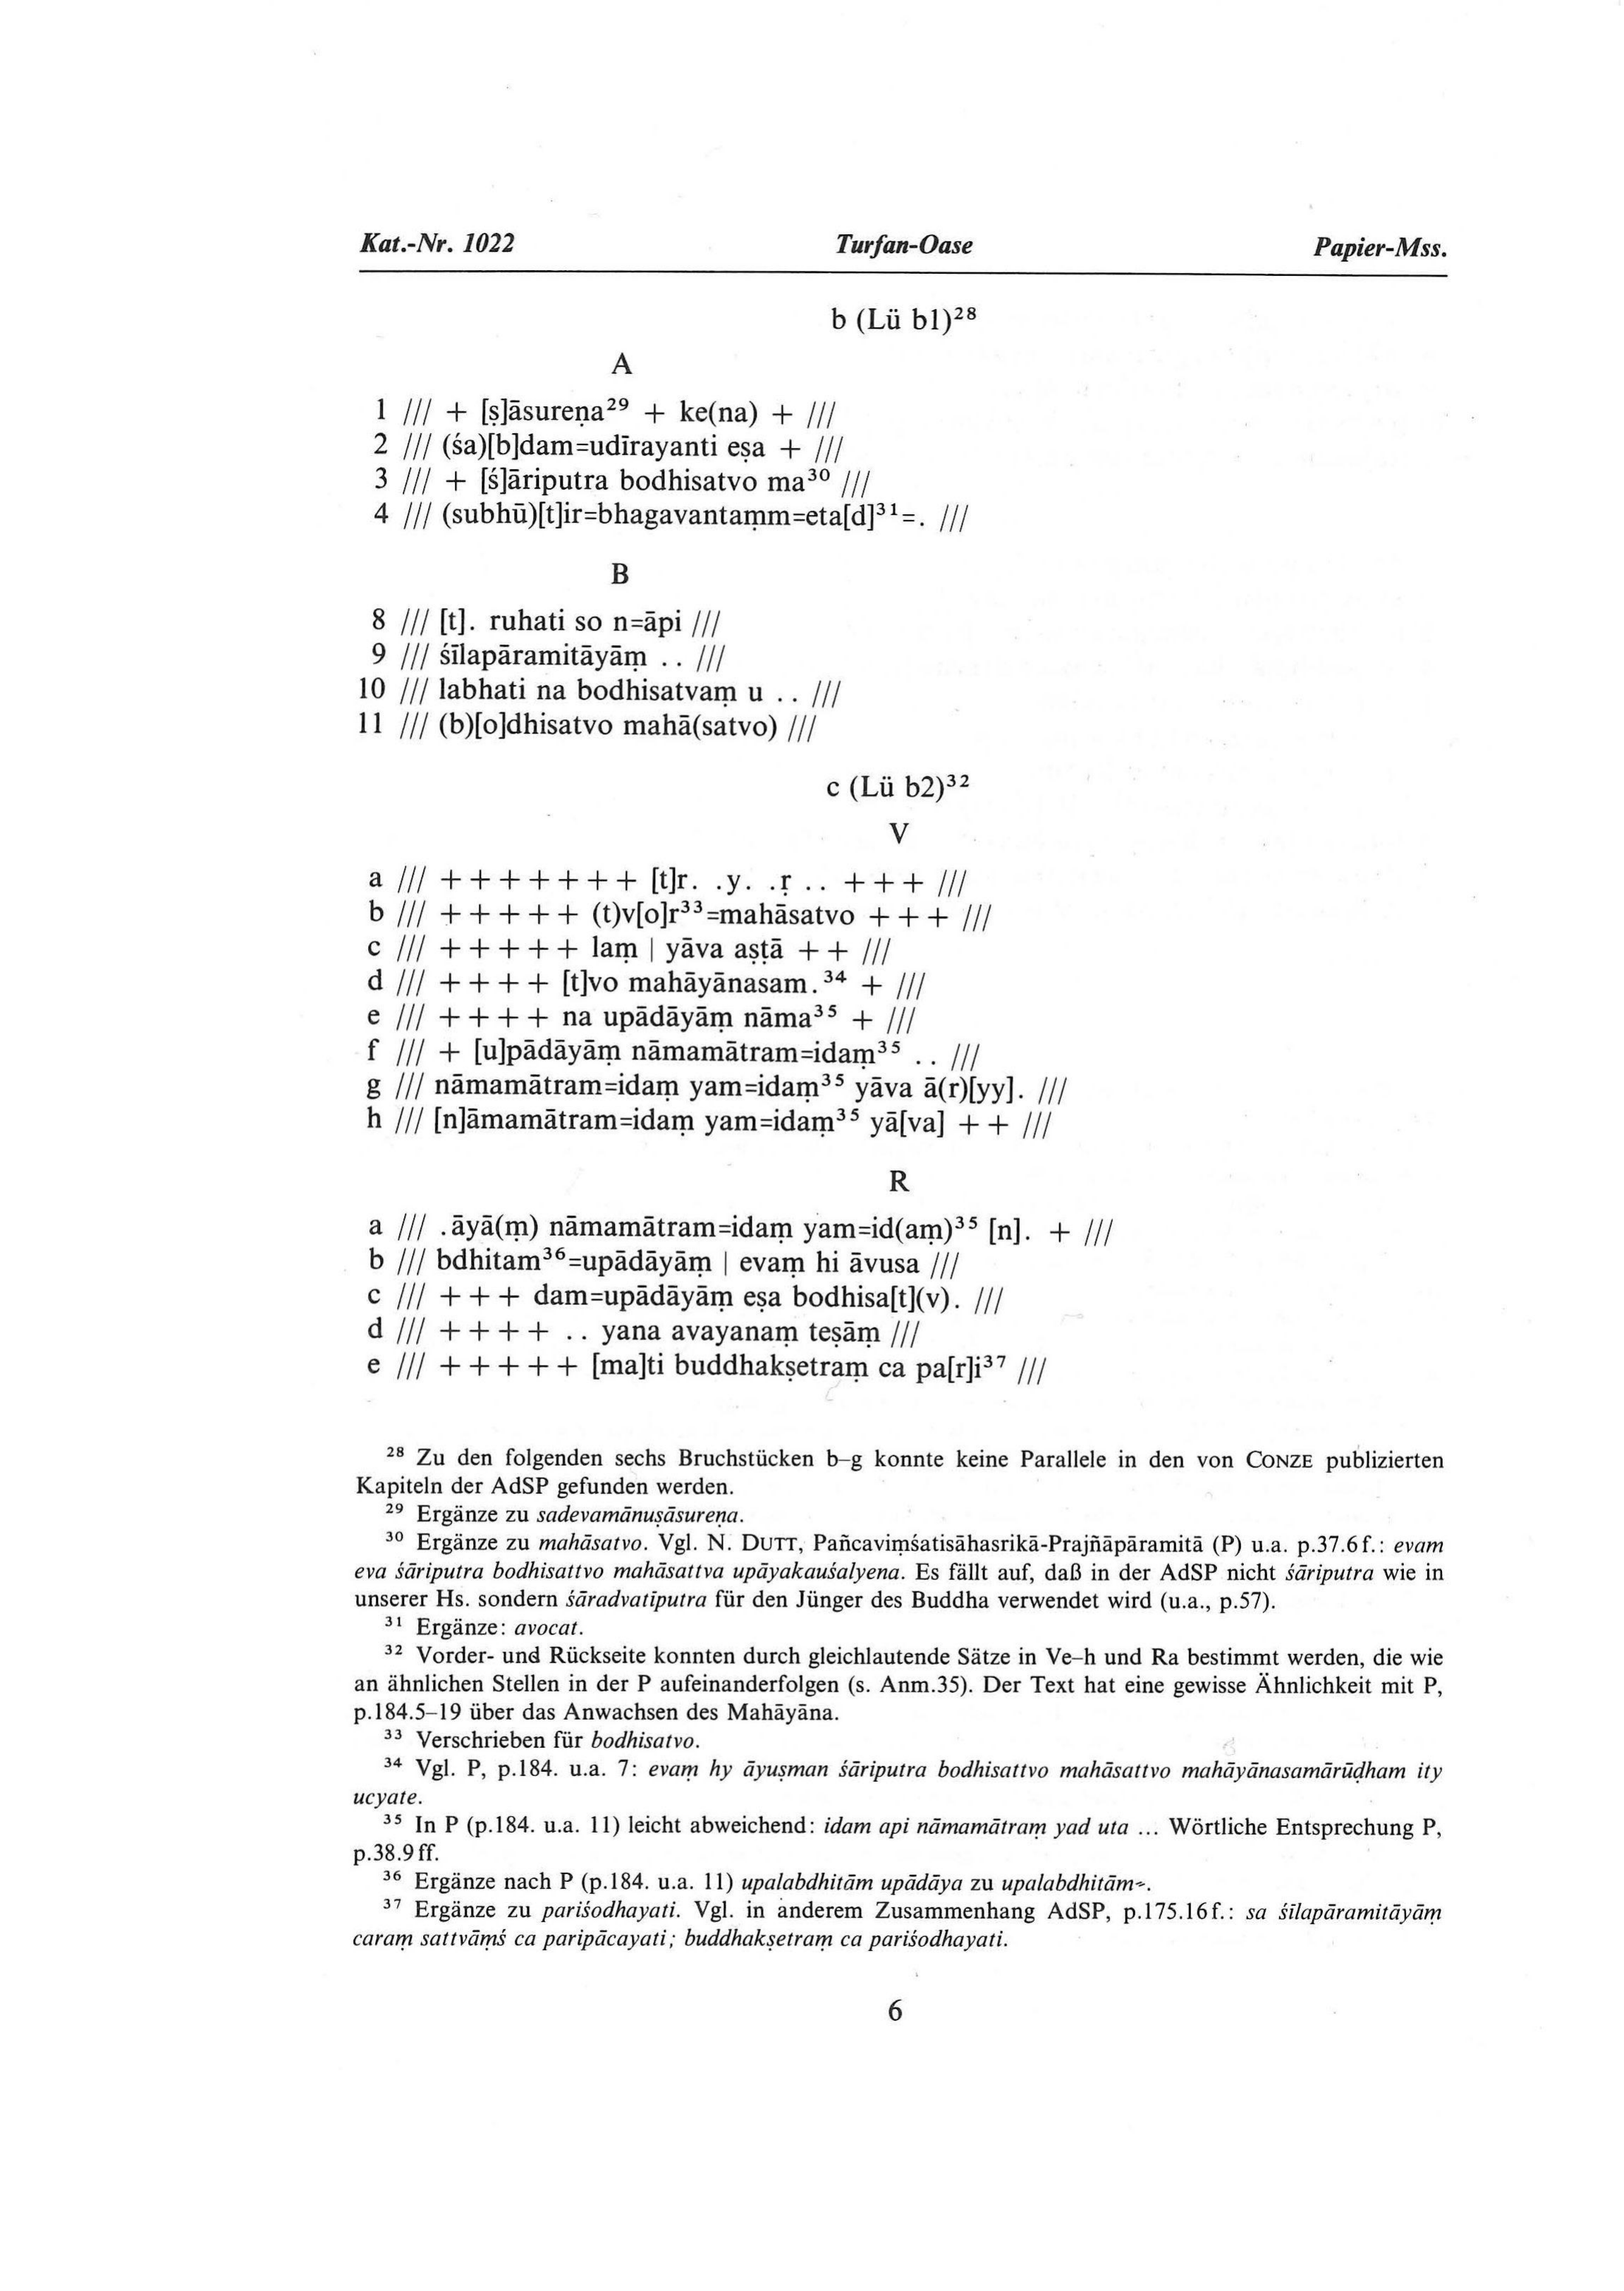 Kat.-Nr. 1022 Turfan-Oase Papier-Mss.
b (Lü b1)²⁸
A
1 /// + [ṣ]āsureṇa²⁹ + ke(na) + ///
2 /// (śa)[b]dam=udīrayanti eṣa + ///
3 /// + [ś]āriputra bodhisatvo ma³⁰ ///
4 /// (subhū)[t]ir=bhagavantaṃm=eta[d]³¹=. ///
B
8 /// [t]. ruhati so n=āpi ///
9 /// śīlapāramitāyāṃ . . ///
10 /// labhati na bodhisatvaṃ u . . ///
11 /// (b)[o]dhisatvo mahā(satvo) ///
c (Lü b2)³²
V
a /// + + + + + + + [t]r. .y. .ṛ . . + + + ///
b /// + + + + + (t)v[o]r³³=mahāsatvo + + + ///
c /// + + + + + laṃ | yāva aṣṭā + + ///
d /// + + + + [t]vo mahāyānasam.³⁴ + ///
e /// + + + + na upādāyāṃ nāma³⁵ + ///
f /// + [u]pādāyāṃ nāmamātram=idaṃ³⁵ . . ///
g /// nāmamātram=idaṃ yam=idaṃ³⁵ yāva ā(r)[yy]. ///
h /// [n]āmamātram=idaṃ yam=idaṃ³⁵ yā[va] + + ///
R
a /// .āyā(ṃ) nāmamātram=idaṃ yam=id(aṃ)³⁵ [n]. + ///
b /// bdhitam³⁶=upādāyāṃ | evaṃ hi āvusa ///
c /// + + + dam=upādāyāṃ eṣa bodhisa[t](v). ///
d /// + + + + . . yana avayanaṃ teṣāṃ ///
e /// + + + + + [ma]ti buddhakṣetraṃ ca pa[r]i³⁷ ///
²⁸ Zu den folgenden sechs Bruchstücken b–g konnte keine Parallele in den von CONZE publizierten
Kapiteln der AdSP gefunden werden.
²⁹ Ergänze zu sadevamānuṣāsureṇa.
³⁰ Ergänze zu mahāsatvo. Vgl. N. DUTT, Pañcaviṃśatisāhasrikā-Prajñāpāramitā (P) u.a. p.37.6f.: evam
eva śāriputra bodhisattvo mahāsattva upāyakauśalyena. Es fällt auf, daß in der AdSP nicht śāriputra wie in
unserer Hs. sondern śāradvatīputra für den Jünger des Buddha verwendet wird (u.a., p.57).
³¹ Ergänze: avocat.
³² Vorder- und Rückseite konnten durch gleichlautende Sätze in Ve–h und Ra bestimmt werden, die wie
an ähnlichen Stellen in der P aufeinanderfolgen (s. Anm.35). Der Text hat eine gewisse Ähnlichkeit mit P,
p.184.5–19 über das Anwachsen des Mahāyāna.
³³ Verschrieben für bodhisatvo.
³⁴ Vgl. P, p.184. u.a. 7: evaṃ hy āyuṣman śāriputra bodhisattvo mahāsattvo mahāyānasamārūḍham ity
ucyate.
³⁵ In P (p.184. u.a. 11) leicht abweichend: idam api nāmamātraṃ yad uta ... Wörtliche Entsprechung P,
p.38.9ff.
³⁶ Ergänze nach P (p.184. u.a. 11) upalabdhitām upādāya zu upalabdhitām~.
³⁷ Ergänze zu pariśodhayati. Vgl. in anderem Zusammenhang AdSP, p.175.16f.: sa śīlapāramitāyāṃ
caraṃ sattvāṃś ca paripācayati; buddhakṣetraṃ ca pariśodhayati.
6